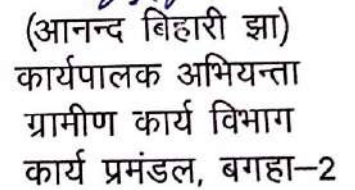 (आनन्द बिहारी झा)
कार्यपालक अभियन्ता
ग्रामीण कार्य विभाग
कार्य प्रमंडल, बगहा–2